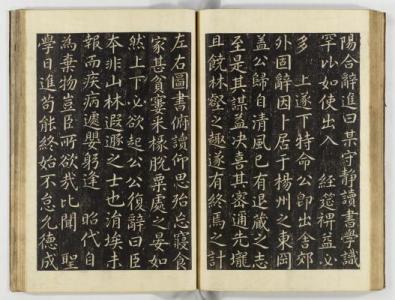 陽合辭進曰某守靜讀書學識
罕比如使出入 經筵裨益必
多 上遂下特命公卽出舍郊
外固辭因卜居于楊州之東岡
盖公歸自清風已有退藏之志
至是其謀益决喜其密邇先壠
且饒林壑之趣遂有終焉之計
左右圖書俯讀仰思殆忘寢食
家甚貧窶采椽脫粟處之晏如
然上下必欲起公公復辭曰臣
本非山林遐遯之士也涓埃未
報而疾病遽嬰躬逢 昭代自
為棄物豈臣所欲哉比聞 聖
學日進苟能終始不怠允德成